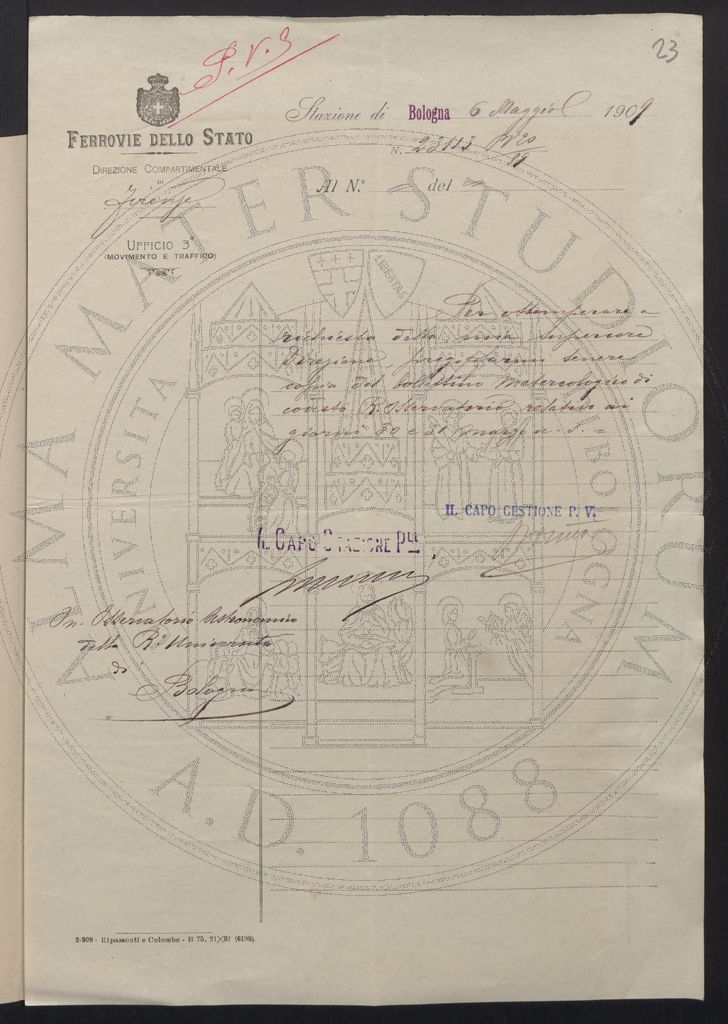 23
P. V. S
Stazione di Bologna 6 Maggio 1909
FERROVIE DELLO STATO
N. 23113
DIREZIONE COMPARTIMENTALE
DI
Firenze
Al N.° del
UFFICIO 3°
(MOVIMENTO E TRAFFICO)
Per ottemperare a
richiesta della mia superiore
Direzione, pregiola tenere
copia del bollettino Metereologico di
codesto R. Osservatorio relativo ai
giorni 30 e 31 marzo u. s. =
IL CAPO GESTIONE P. V.
IL CAPO STAZIONE P.le
On. Osservatorio Astronomico
della R.a Università
di
Bologna
2-908 - Ripamonti e Colombo - B 75, 21X31 (6198)
ALMA MATER STUDIORUM
UNIVERSITÀ BOLOGNA
LIBERTAS
A.D. 1088